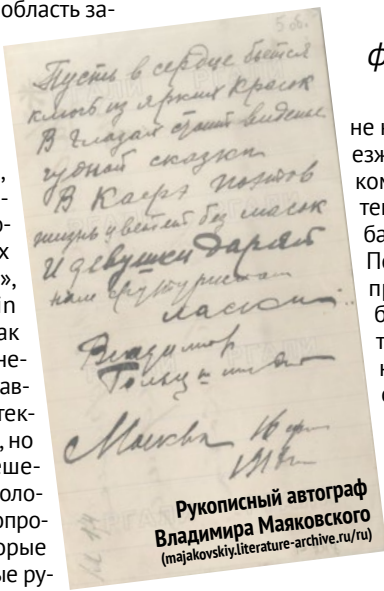 область за-
,
-
о-
х
»,
in
ак
не-
ав-
тек-
, но
еше-
оло-
опро-
орые
ые ру-
5 об.
Пусть в сердце бьется
ключ из ярких красок
В глазах стоит виденье
чудной сказки
В Кафэ поэтов
жизнь цветет без масок
И девушки дарят
нам футуристам
ласки...
Владимир
Москва 16
1918
Рукописный автограф
Владимира Маяковского
(majakovskiy.literature-archive.ru/ru)
ф
не
езж
ком
тек
ба
По
пр
б
т